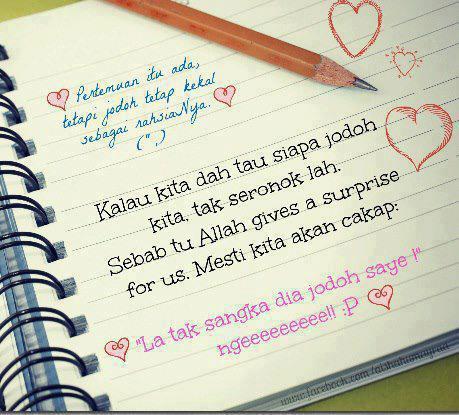 Pertemuan itu ada,
tetapi jodoh tetap kekal
sebagai rahsiaNya.
(",)
Kalau kita dah tau siapa jodoh
kita, tak seronok lah.
Sebab tu Allah gives a surprise
for us. Mesti kita akan cakap:
"La tak sangka dia jodoh saye !"
ngeeeeeeeee!! :P